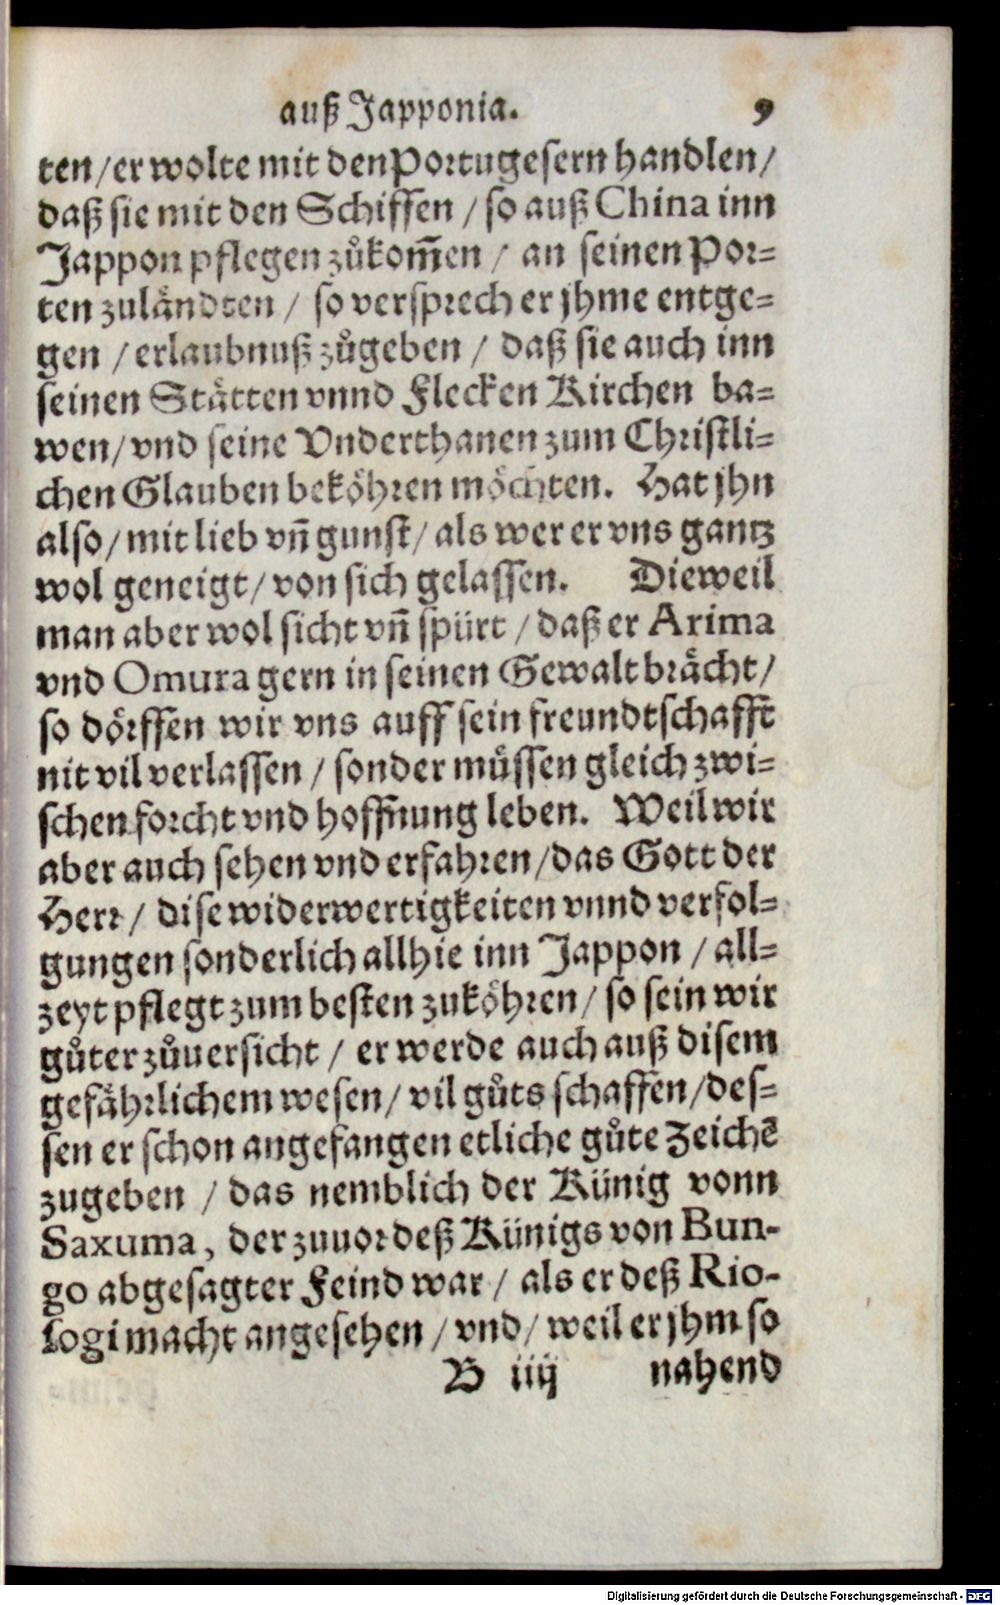 auß Japponia. 9
ten/er wolte mit den Portugesern handlen/
daß sie mit den Schiffen / so auß China inn
Jappon pflegen zůkom̃en / an seinen Por=
ten zuländten / so versprech er jhme entge=
gen / erlaubnuß zůgeben / daß sie auch inn
seinen Stätten vnnd Flecken Kirchen ba=
wen/vnd seine Vnderthanen zum Christli=
chen Glauben beköhren möchten. Hat jhn
also/mit lieb vñ gunst/als wer er vns gantz
wol geneigt/von sich gelassen. Dieweil
man aber wol sicht vñ spürt / daß er Arima
vnd Omura gern in seinen Gewalt brächt/
so dörffen wir vns auff sein freundtschafft
nit vil verlassen / sonder müssen gleich zwi=
schen forcht vnd hoffnung leben. Weil wir
aber auch sehen vnd erfahren/das Gott der
Herr / dise widerwertigkeiten vnnd verfol=
gungen sonderlich allhie inn Jappon / all=
zeyt pflegt zum besten zuköhren/so sein wir
gůter zůuersicht / er werde auch auß disem
gefährlichem wesen/vil gůts schaffen/des=
sen er schon angefangen etliche gůte Zeichẽ
zugeben / das nemblich der Künig vonn
Saxuma, der zuuor deß Künigs von Bun-
go abgesagter Feind war / als er deß Rio-
sogi macht angesehen /vnd/ weil er jhm so
B iiij nahend
Digitalisierung gefördert durch die Deutsche Forschungsgemeinschaft - DFG